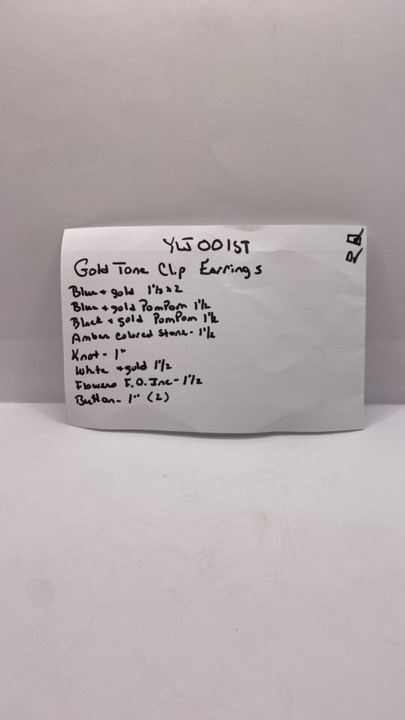 YWOO1ST
Gold Tone Clip Earrings
Blue + gold 1½ x 2
Blue + gold PomPom 1½
Black + gold PomPom 1½
Amber Colored Stone - 1½
Knot - 1"
White + gold 1½
Flowers F.O. Inc - 1½
Button - 1" (2)